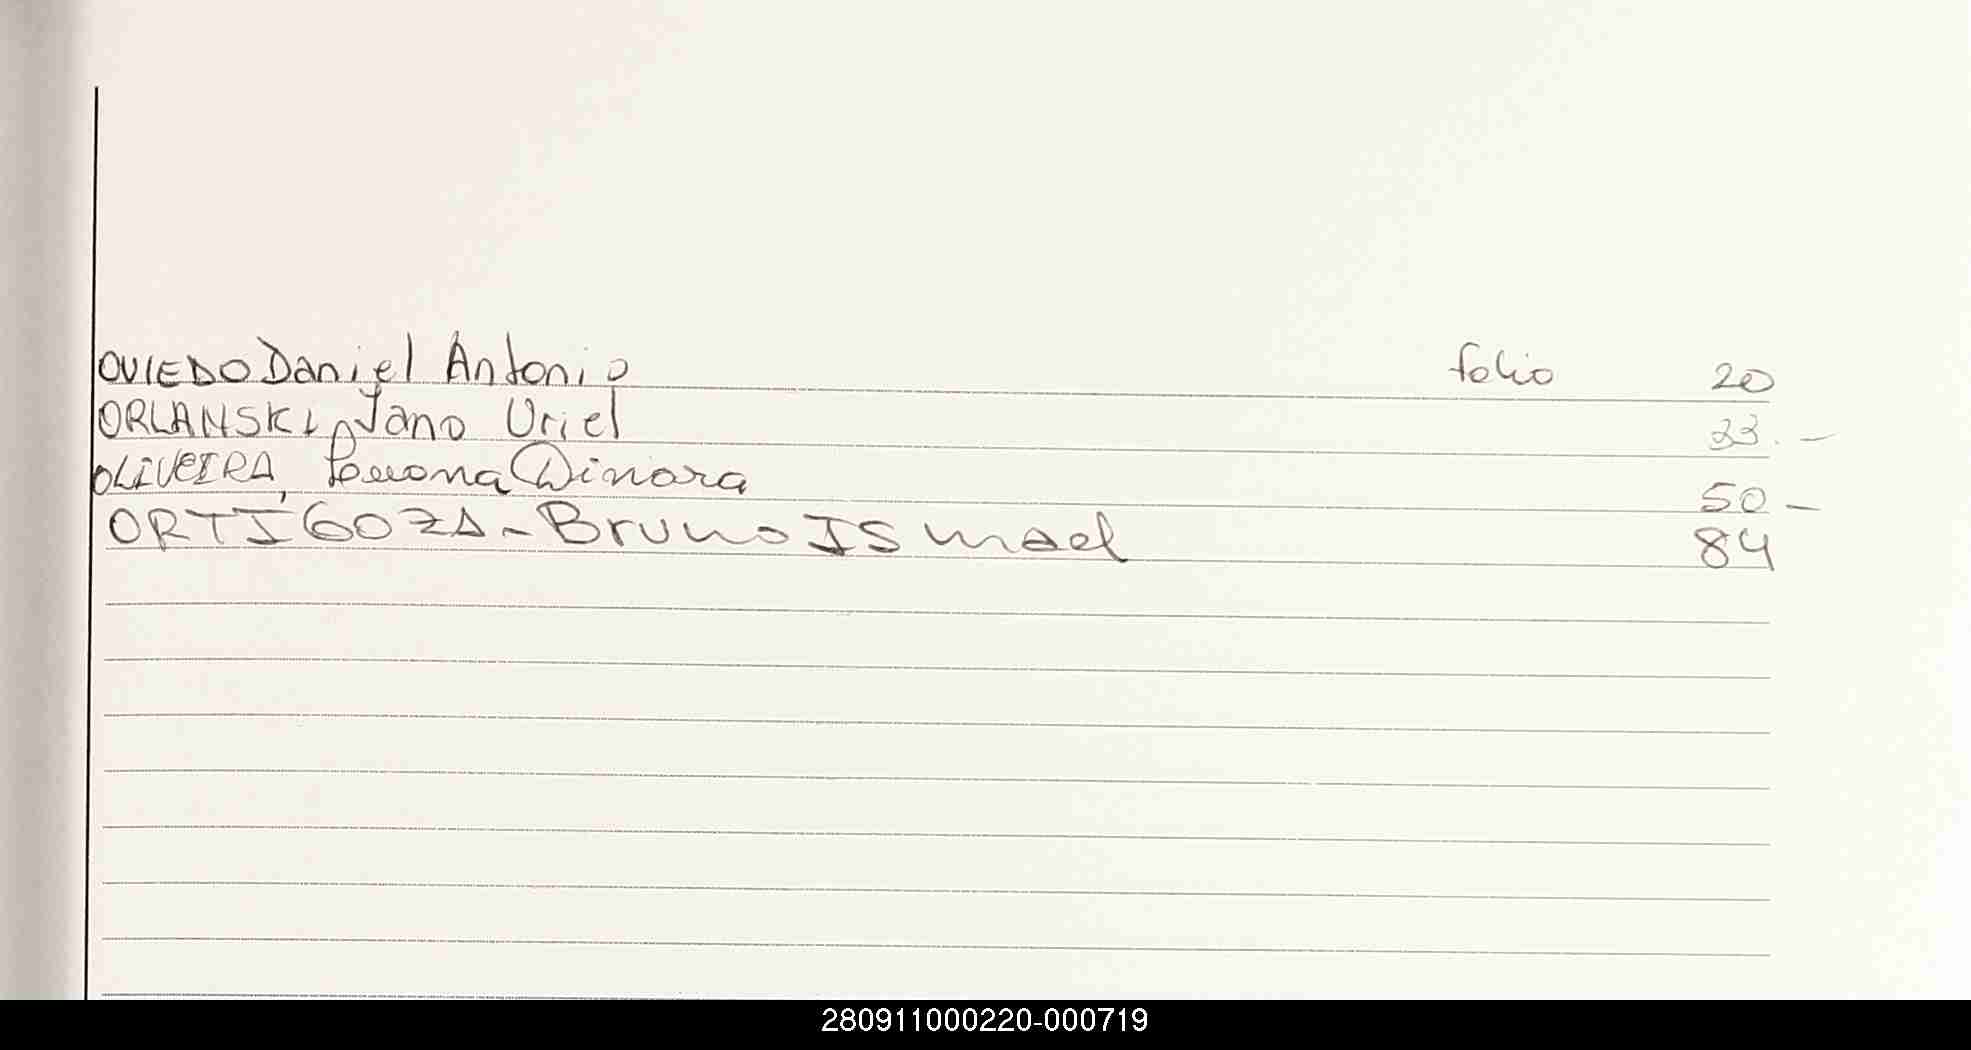 OVIEDO Daniel Antonio folio 20
ORLANSKI, Jano Uriel 33.-
OLIVEIRA, Dinora 50-
ORTIGOZA - Bruno ISmael 84
280911000220-000719